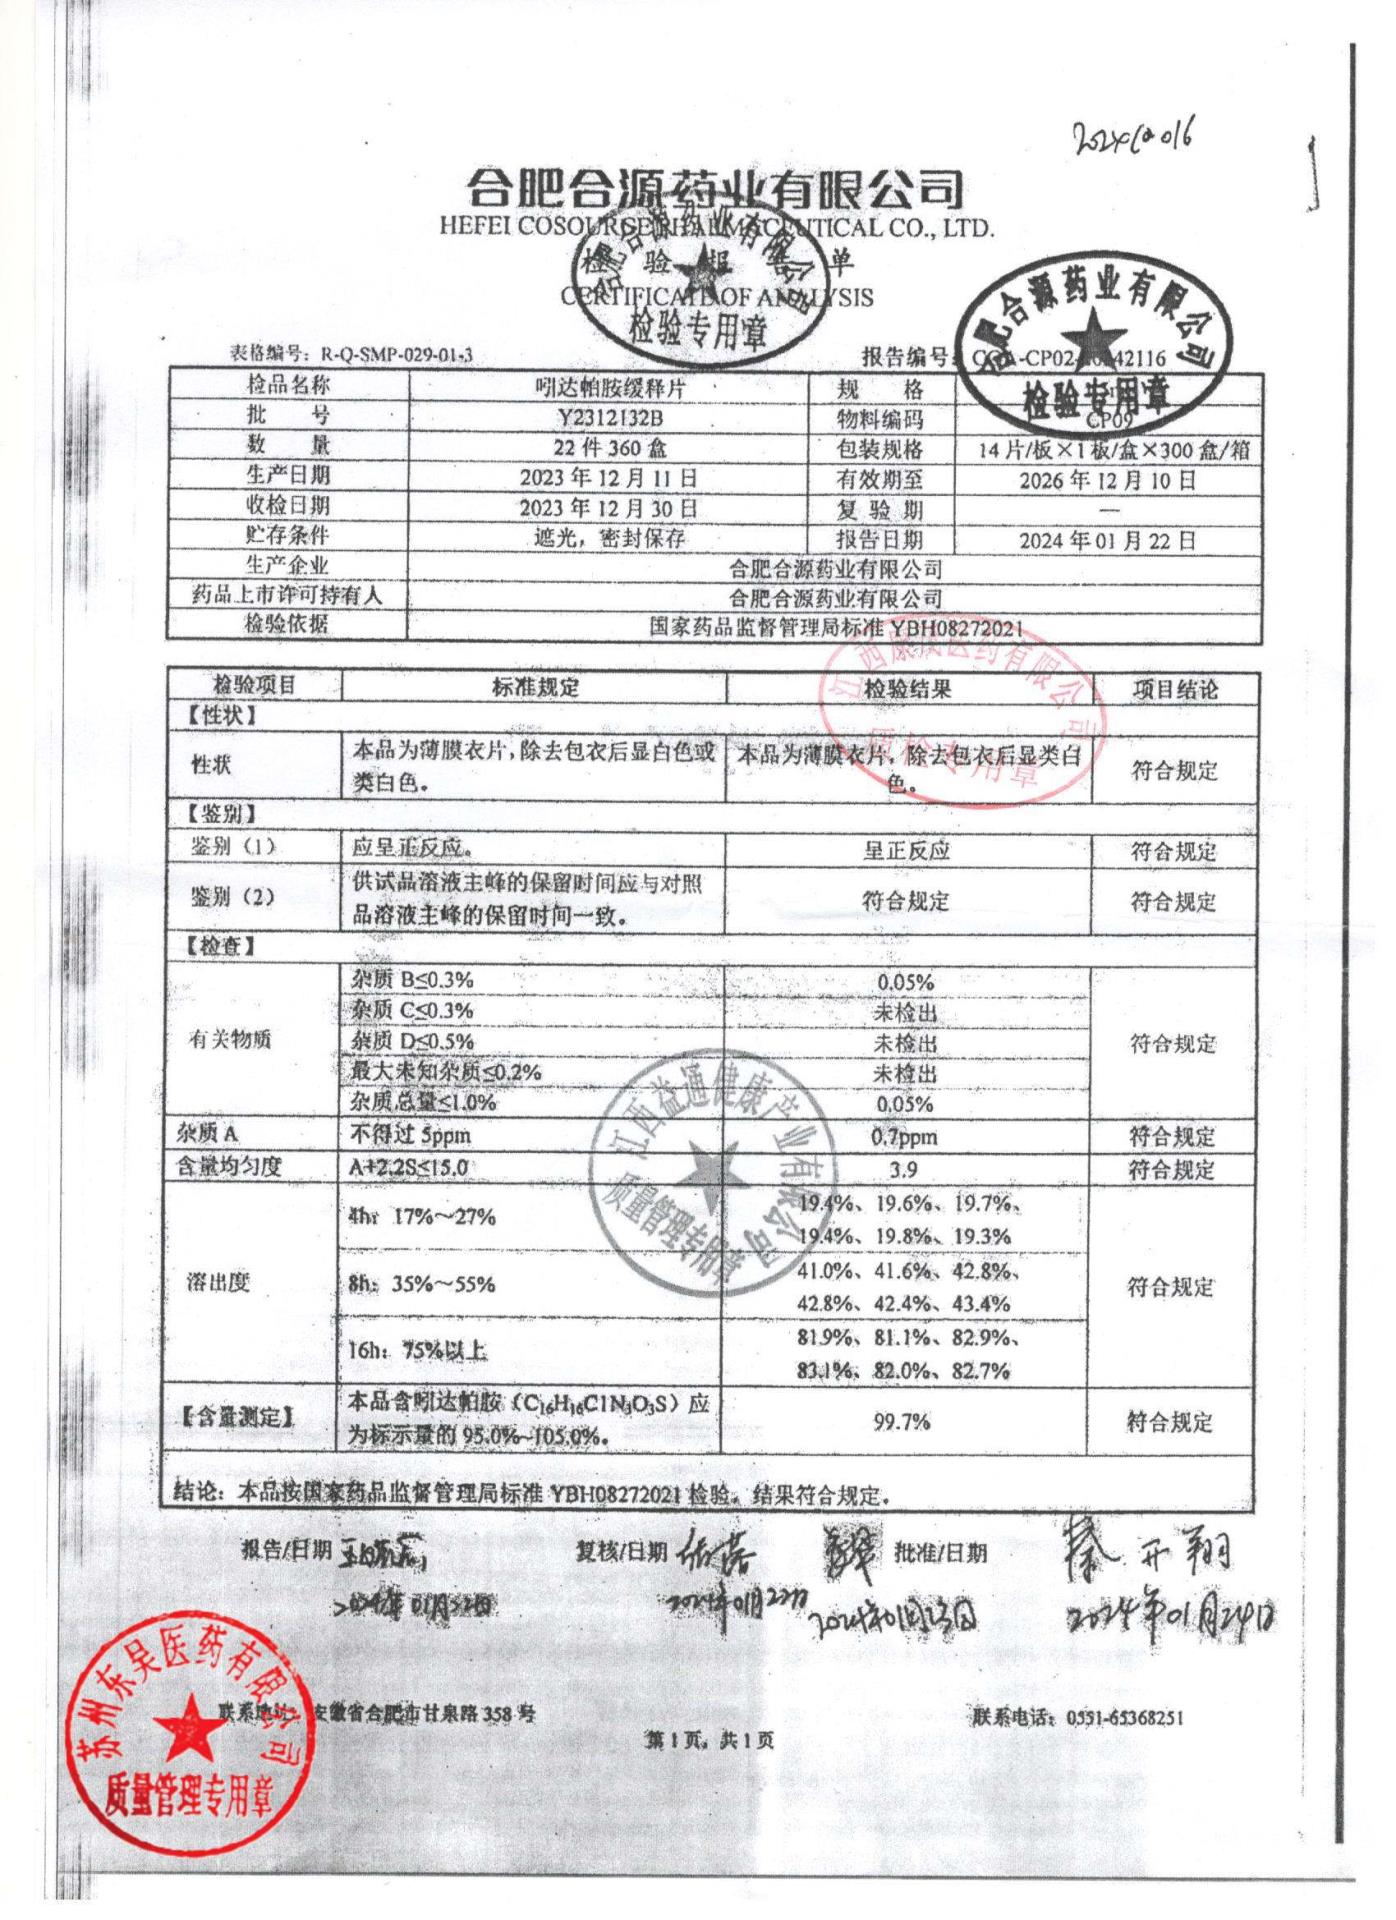 合肥合源药业有限公司
HEFEI COSOURCE PHARMACEUTICAL CO., LTD.
检验报告单
CERTIFICATE OF ANALYSIS
合肥合源药业有限公司
检验专用章
合肥合源药业有限公司
检验专用章
表格编号：R-Q-SMP-029-01-3 报告编号
检品名称 吲达帕胺缓释片 规格
批号 Y2312132B 物料编码 CP09
数量 22件360盒 包装规格 14片/板×1板/盒×300盒/箱
生产日期 2023年12月11日 有效期至 2026年12月10日
收检日期 2023年12月30日 复验期 —
贮存条件 遮光，密封保存 报告日期 2024年01月22日
生产企业 合肥合源药业有限公司
药品上市许可持有人 合肥合源药业有限公司
检验依据 国家药品监督管理局标准 YBH08272021
江西康成医药有限公司
质检专用章
检验项目 标准规定 检验结果 项目结论
【性状】
性状 本品为薄膜衣片，除去包衣后显白色或类白色。 本品为薄膜衣片，除去包衣后显类白色。 符合规定
【鉴别】
鉴别（1） 应呈正反应。 呈正反应 符合规定
鉴别（2） 供试品溶液主峰的保留时间应与对照品溶液主峰的保留时间一致。 符合规定 符合规定
【检查】
有关物质 杂质 B≤0.3% 0.05% 符合规定
杂质 C≤0.3% 未检出
杂质 D≤0.5% 未检出
最大未知杂质≤0.2% 未检出
杂质总量≤1.0% 0.05%
杂质 A 不得过 5ppm 0.7ppm 符合规定
含量均匀度 A+2.2S≤15.0 3.9 符合规定
溶出度 4h：17%～27% 19.4%、19.6%、19.7%、 符合规定
19.4%、19.8%、19.3%
8h：35%～55% 41.0%、41.6%、42.8%、
42.8%、42.4%、43.4%
16h：75%以上 81.9%、81.1%、82.9%、
83.1%、82.0%、82.7%
江西益通健康产业有限公司
质量管理专用章
【含量测定】 本品含吲达帕胺（C₁₆H₁₆ClN₃O₃S）应为标示量的 95.0%~105.0%。 99.7% 符合规定
结论：本品按国家药品监督管理局标准 YBH08272021 检验，结果符合规定。
报告/日期 复核/日期 批准/日期 秦开翔
2024年01月22日 2024年01月22日 2024年01月23日 2024年01月24日
苏州东吴医药有限公司
质量管理专用章
联系地址：安徽省合肥市甘泉路 358 号 联系电话：0551-65368251
第 1 页，共 1 页